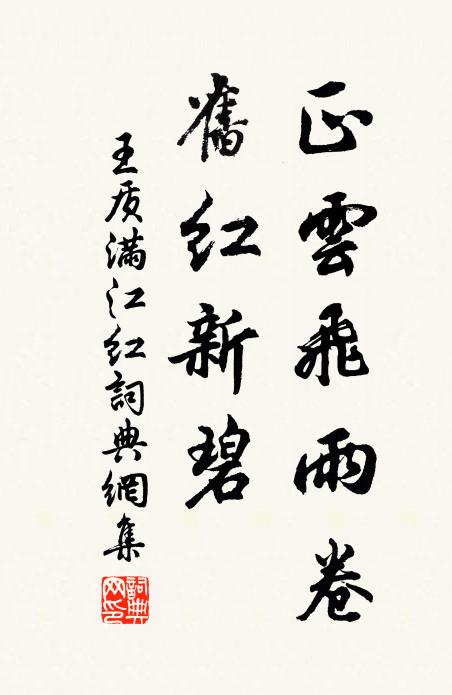 正雲飛雨卷
舊紅新碧
王质滿江红詞典網集
詞典网印